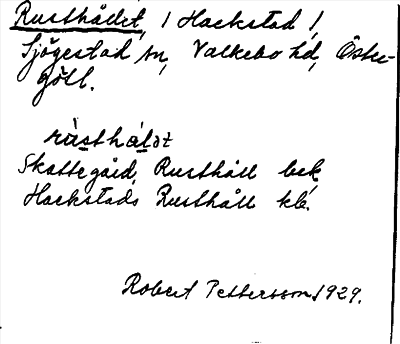 Rusthådet, 1 Hackstad 1,
Sjögestad sn, Valkebo hd, Öster-
götl.
rùsthál̀dt
Skattegård, Rusthåll bek
Hackstads Rusthåll kb.
Robert Pettersson 1929.